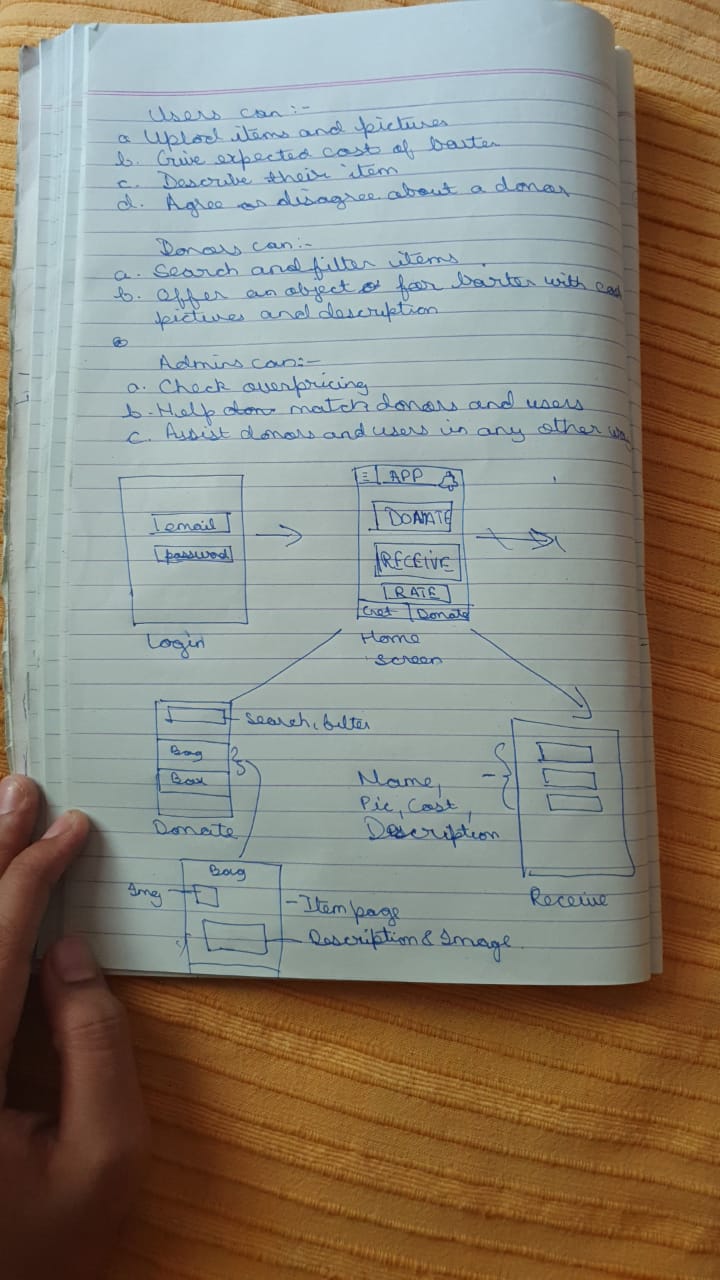 Users can:-
a. Uplod items and pictures
b. Give expected cost of barter
c. Describe their item
d. Agree or disagree about a donor
Donors can:-
a. Search and filter items
b. Offer an object for barter with
pictures and description
Admins can:-
a. Check overpricing
b. Help match donors and users
c. Assist donors and users in any other way
email
password
Login
APP
DONATE
RECEIVE
RATE
Get Donate
Home
screen
Search, filter
Bag
Box
Donate
Name,
Pic, Cost,
Description
Receive
Bag
Img
Item page
Description & Image